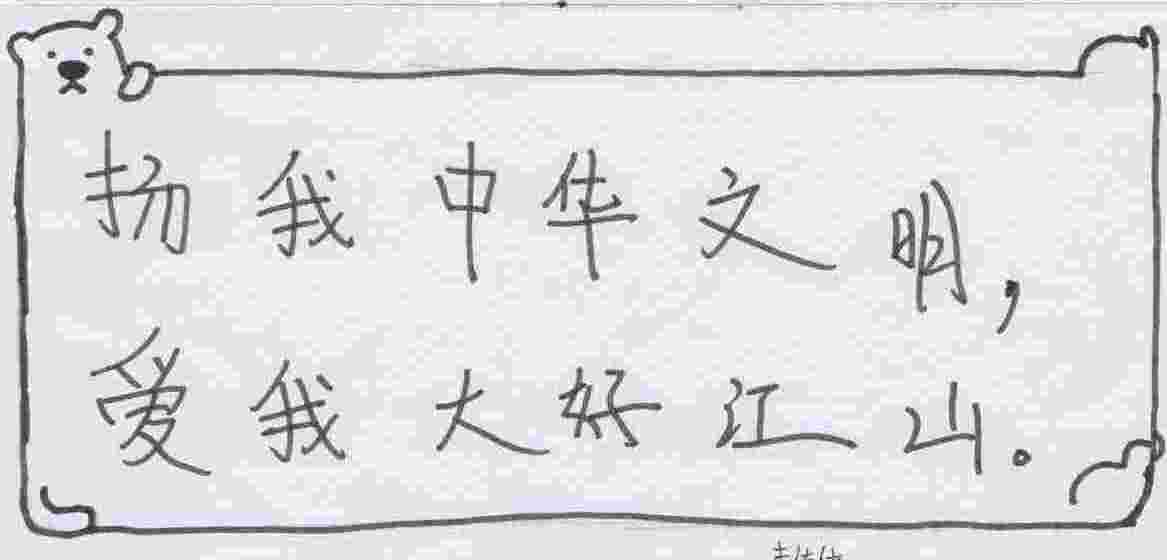 扬我中华文明，
爱我大好江山。